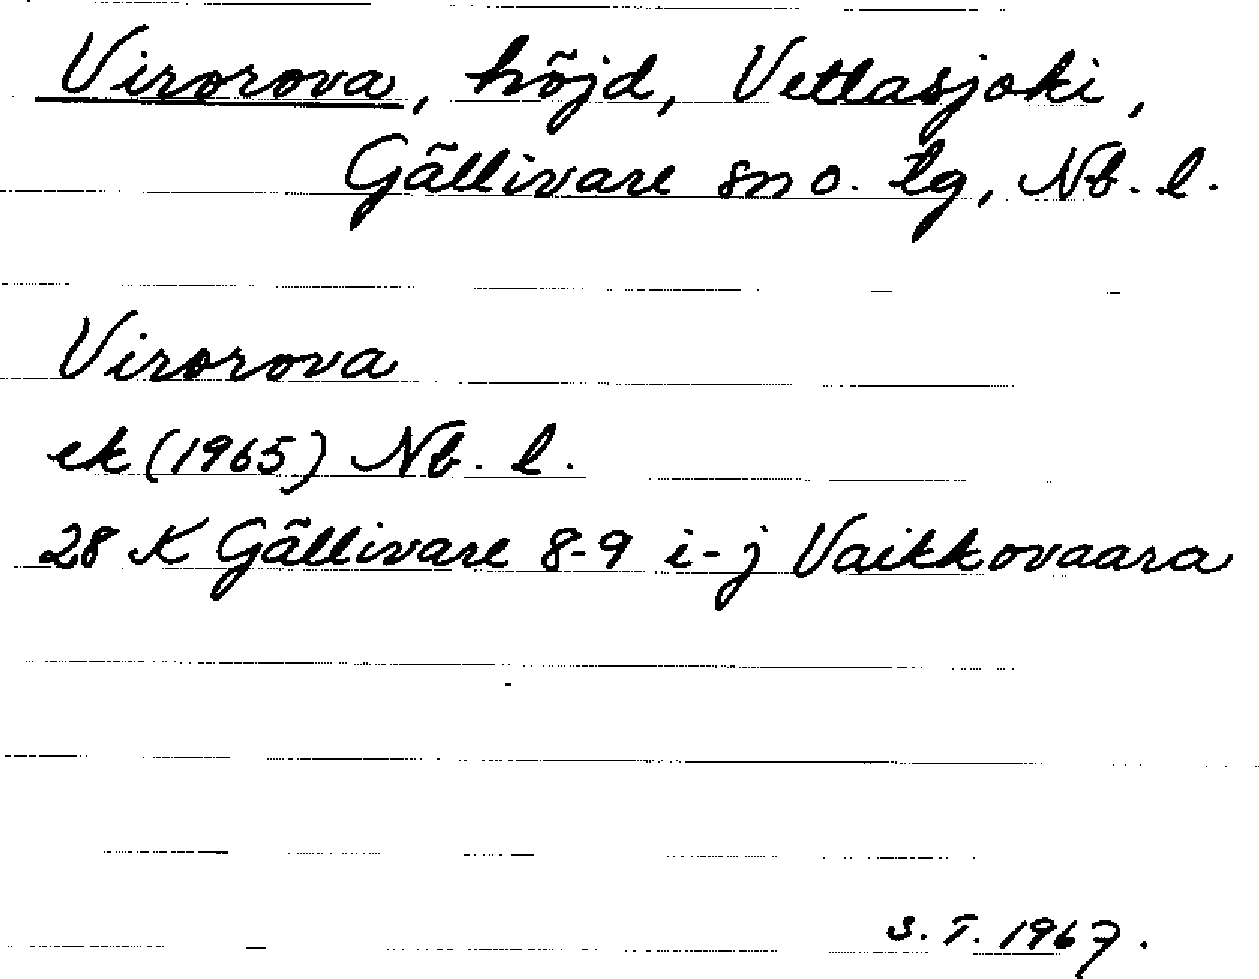 Virorova, höjd, Vettasjoki,
Gällivare sn o. tg, Nb. l.
Virorova
ek (1965) Nb. l.
28 K Gällivare 8-9 i-j Vaikkovaara
S. T. 1967.